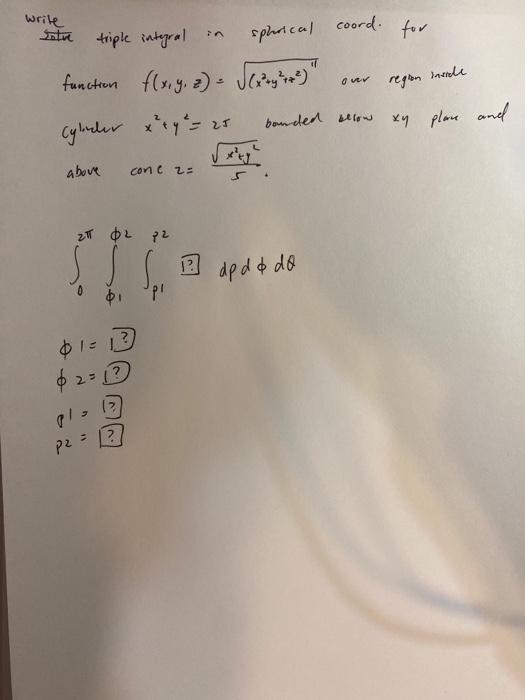 write
triple integral in spherical coord. for
function f(x,y,z) = √(x²+y²+z²)¹¹ over region inside
cylinder x²+y²=25 bounded below xy plane and
above cone z= √x²+y² / 5 .
2π ϕ2 ρ2
∫ ∫ ∫ [?] dρdϕdθ
0 ϕ1 ρ1
ϕ1= [?]
ϕ2= [?]
ρ1= [?]
ρ2= [?]